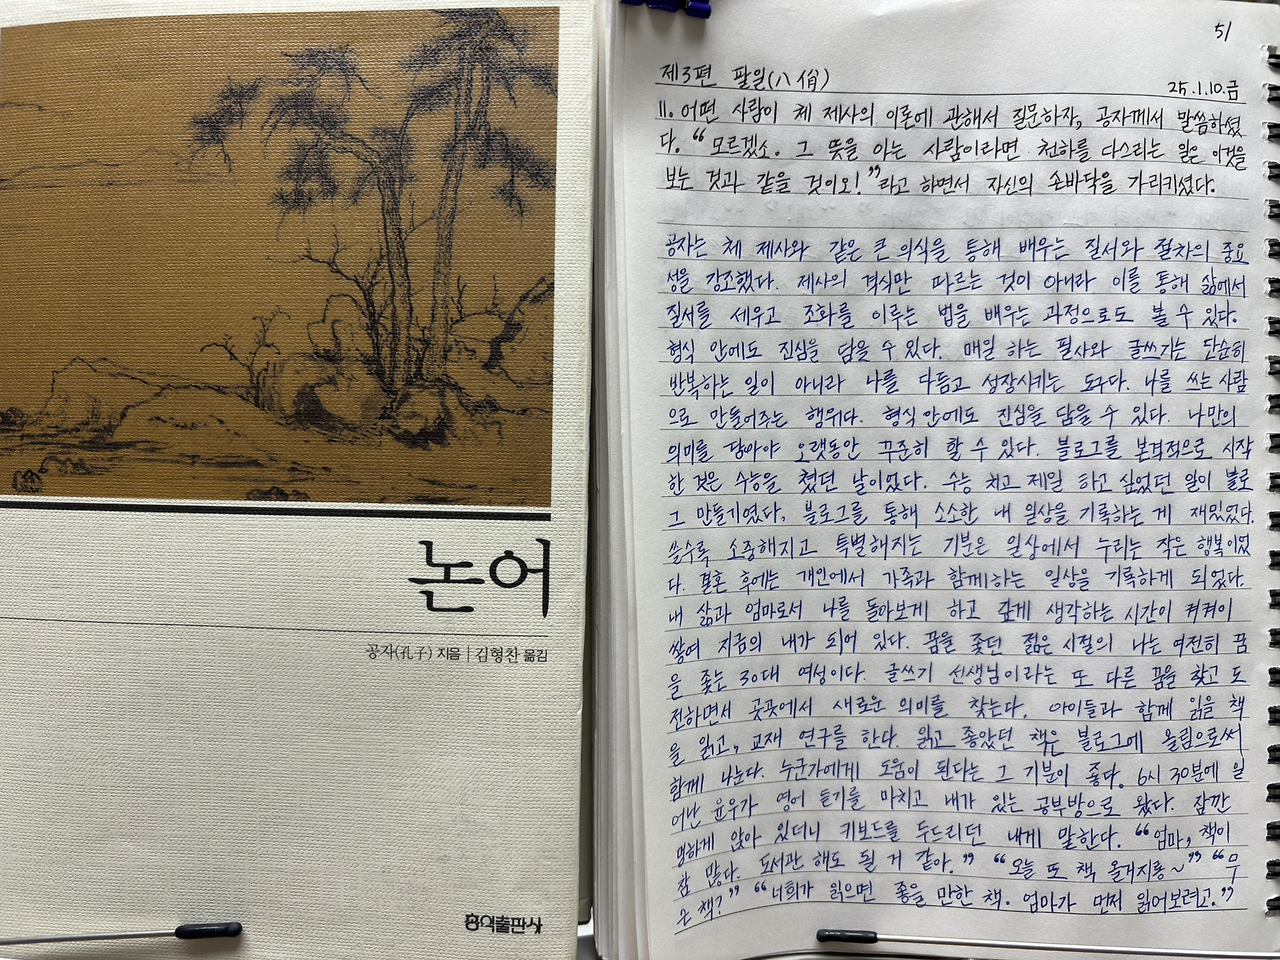 논어
공자(孔子) 지음 | 김형찬 옮김
홍익출판사
51
제3편 팔일(八佾)
25.1.10.금
11. 어떤 사람이 체 제사의 이론에 관해서 질문하자, 공자께서 말씀하셨
다. “모르겠소. 그 뜻을 아는 사람이라면 천하를 다스리는 일은 이것을
보는 것과 같을 것이오!”라고 하면서 자신의 손바닥을 가리키셨다.
공자는 체 제사와 같은 큰 의식을 통해 배우는 질서와 절차의 중요
성을 강조했다. 제사의 격식만 따르는 것이 아니라 이를 통해 삶에서
질서를 세우고 조화를 이루는 법을 배우는 과정으로도 볼 수 있다.
형식 안에도 진심을 담을 수 있다. 매일 하는 필사와 글쓰기는 단순히
반복하는 일이 아니라 나를 다듬고 성장시키는 도구다. 나를 쓰는 사람
으로 만들어주는 행위다. 형식 안에도 진심을 담을 수 있다. 나만의
의미를 담아야 오랫동안 꾸준히 할 수 있다. 블로그를 본격적으로 시작
한 것은 수능을 쳤던 날이었다. 수능 치고 제일 하고 싶었던 일이 블로
그 만들기였다. 블로그를 통해 소소한 내 일상을 기록하는 게 재밌었다.
쓸수록 소중해지고 특별해지는 기분은 일상에서 누리는 작은 행복이었
다. 결혼 후에는 개인에서 가족과 함께하는 일상을 기록하게 되었다.
내 삶과 엄마로서 나를 돌아보게 하고 깊게 생각하는 시간이 켜켜이
쌓여 지금의 내가 되어 있다. 꿈을 좇던 젊은 시절의 나는 여전히 꿈
을 좇는 30대 여성이다. 글쓰기 선생님이라는 또 다른 꿈을 찾고 도
전하면서 곳곳에서 새로운 의미를 찾는다. 아이들과 함께 읽을 책
을 읽고, 교재 연구를 한다. 읽고 좋았던 책은 블로그에 올림으로써
함께 나눈다. 누군가에게 도움이 된다는 그 기분이 좋다. 6시 30분에 일
어난 윤우가 영어 듣기를 마치고 내가 있는 공부방으로 왔다. 잠깐
멍하게 앉아 있더니 키보드를 두드리던 내게 말한다. “엄마, 책이
참 많다. 도서관 해도 될 거 같아.” “오늘 또 책 올거지롱~” “무
슨 책?” “너희가 읽으면 좋을 만한 책. 엄마가 먼저 읽어보려고.”